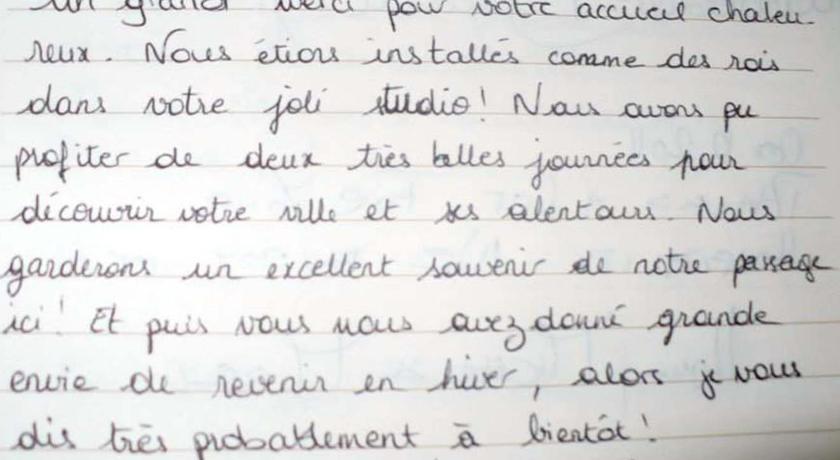 un grand merci pour votre accueil chaleu-
reux. Nous étions installés comme des rois
dans votre joli studio! Nous avons pu
profiter de deux très belles journées pour
découvrir votre ville et ses alentours. Nous
garderons un excellent souvenir de notre passage
ici! Et puis vous nous avez donné grande
envie de revenir en hiver, alors je vous
dis très probablement à bientôt!